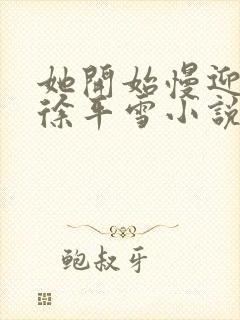 她開始慢迎
徐平雪小說
鮑叔牙